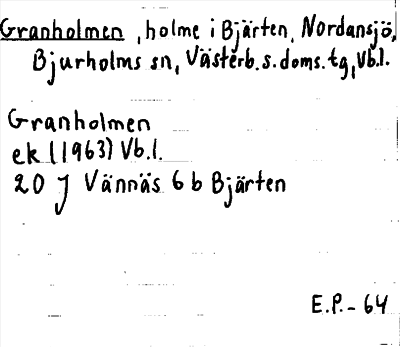 Granholmen, holme i Bjärten, Nordansjö,
Bjurholms sn, Västerb.s.doms.tg, Vb.l.
Granholmen
ek (1963) Vb.l.
20 J Vännäs 6 b Bjärten
E.P.-64